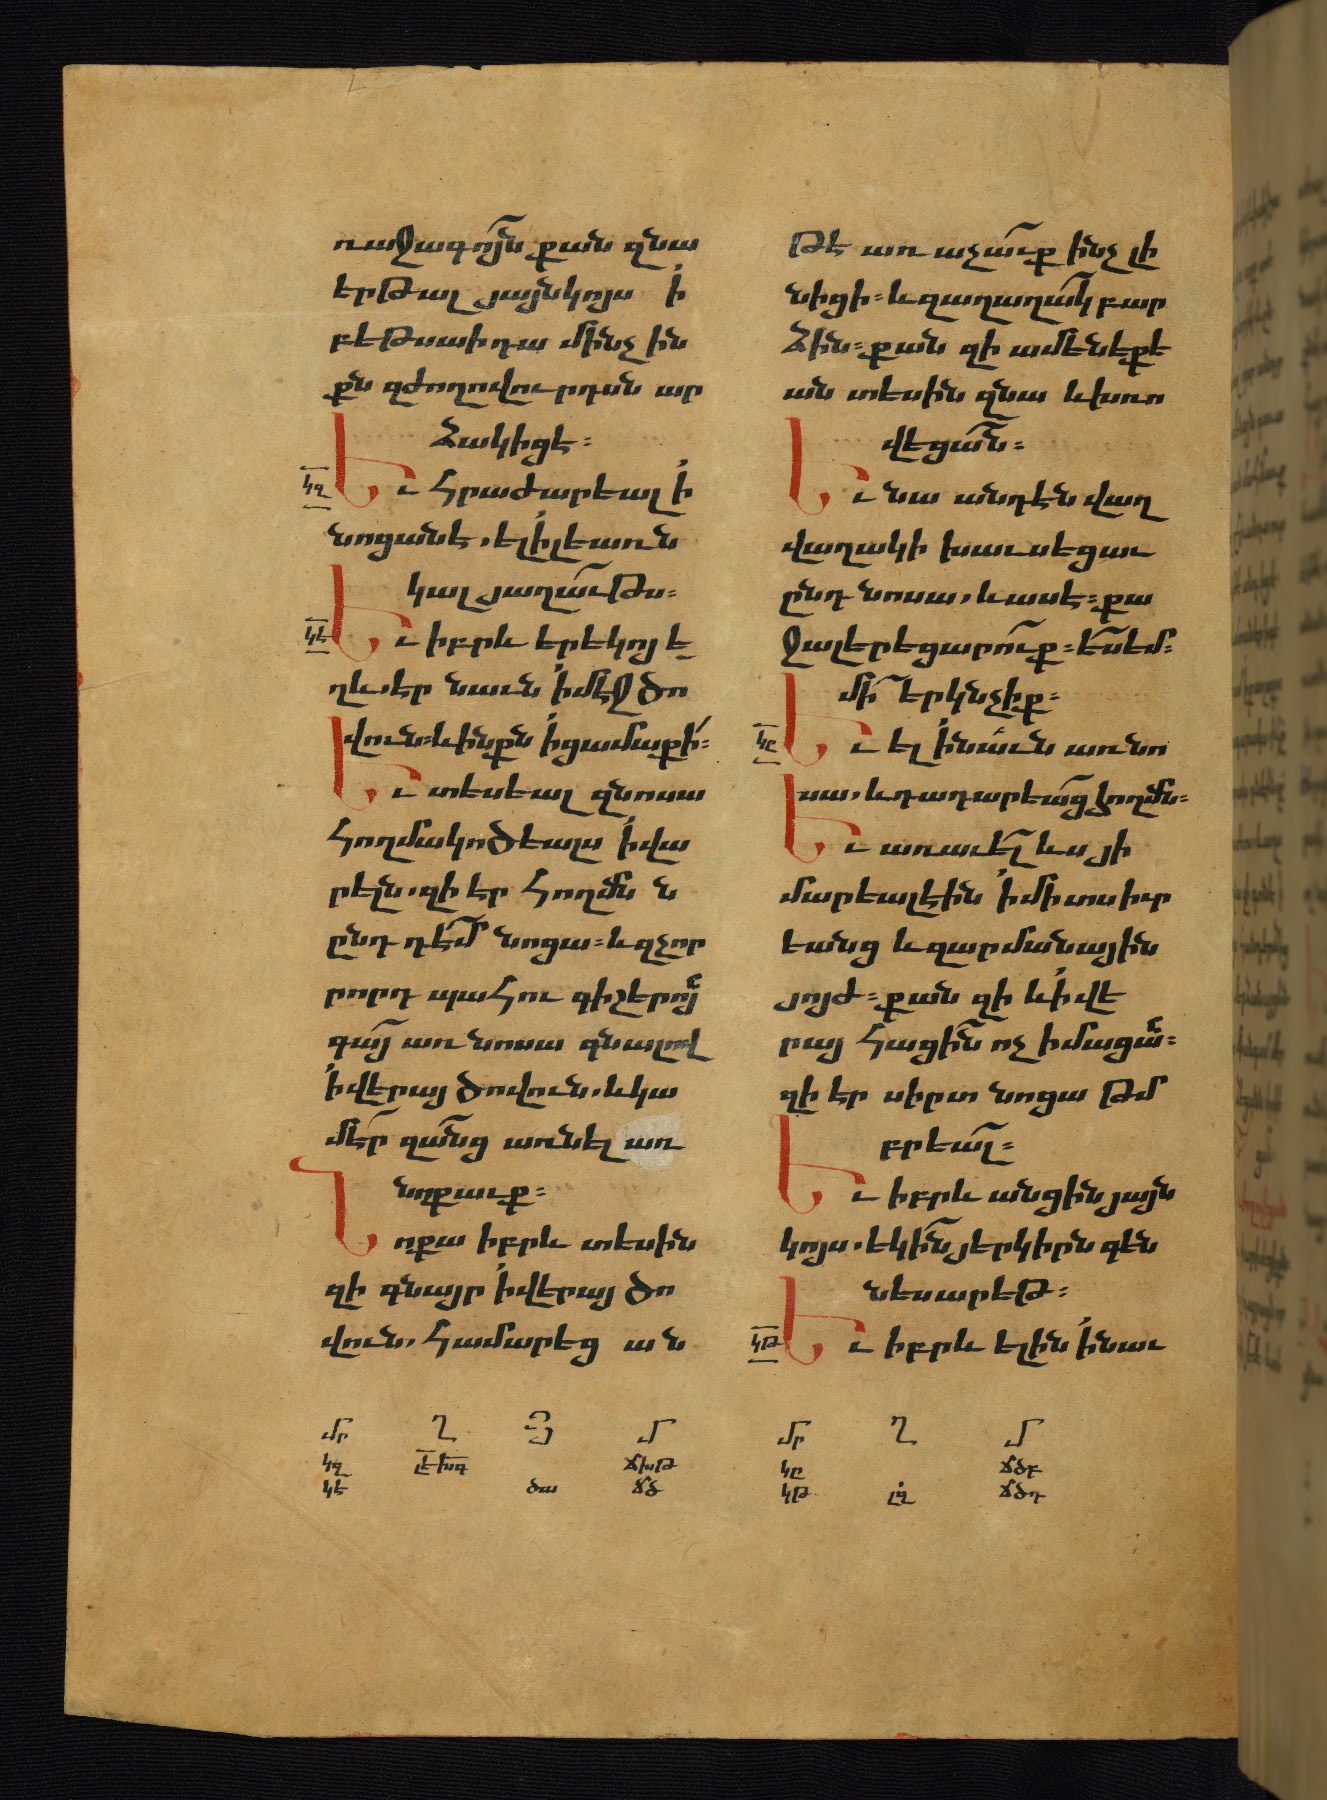 ռաջագոյն քան զնա
երթալ յայնկոյս ի
բեթսաիդա մինչ ին
քն զժողովուրդսն ար
ձակիցէ։
կզ Եւ հրաժարեալ ի
նոցանէ, ել ի լեառն
կալ յաղաւթս։
կէ Եւ իբրև երեկոյ ե
ղև, էր նաւն ի մէջ ծո
վուն։ և ինքն ի ցամաքի։
Եւ տեսեալ զնոսա
հողմակոծեալս ի վա
րելն, զի էր հողմն ն
ընդ դէմ նոցա։ և զչոր
րորդ պահու գիշերոյ
գայ առ նոսա գնալով
ի վերայ ծովուն, և կա
մէր զանց առնել առ
նոքաւք։
Նոքա իբրև տեսին
զի գնայր ի վերայ ծո
վուն, համարեցան
թէ առ աչաւք ինչ լի
նիցի։ և զաղաղակ բար
ձին։ քան զի ամենեքե
ան տեսին զնա և խռո
վեցան։
Եւ նա անդէն վաղ
վաղակի խաւսեցաւ
ընդ նոսա, և ասէ։ քա
ջալերեցարուք։ ես եմ։
մի երկնչիք։
կը Եւ ել ի նաւն առ նո
սա, և դադարեաց հողմն։
Եւ առաւել ևս յի
մարեալ էին ի միտս իւր
եանց և զարմանային
յոյժ։ քան զի և ի վե
րայ հացին ոչ իմացան։
զի էր սիրտ նոցա թմ
բրեալ։
Եւ իբրև անցին յայն
կոյս, եկին յերկիրն գեն
նեսարեթ։
կթ Եւ իբրև ելին ի նաւ
մր ղ յ մ
կզ լէ խգ ճխթ
կէ ծա ճծ
մր ղ մ
կը ճծբ
կթ լզ ճծդ